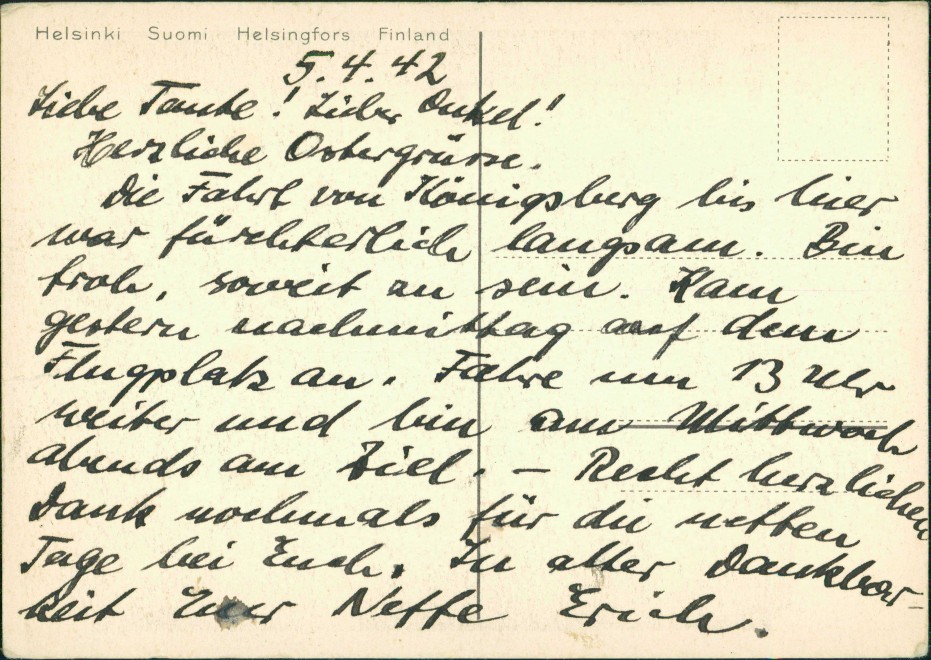 Helsinki Suomi Helsingfors Finland
5.4.42
Liebe Tante! Lieber Onkel!
Herzliche Ostergrüsse.
Die Fahrt von Königsberg bis hier
war fürchterlich langsam. Bin
froh, soweit zu sein. Kam
gestern nachmittag auf dem
Flugplatz an. Fahre um 13 Uhr
weiter und bin am Mittwoch
abends am Ziel. — Recht herzlichen
Dank nochmals für die netten
Tage bei Euch. In alter Dankbar-
keit Euer Neffe Erich.